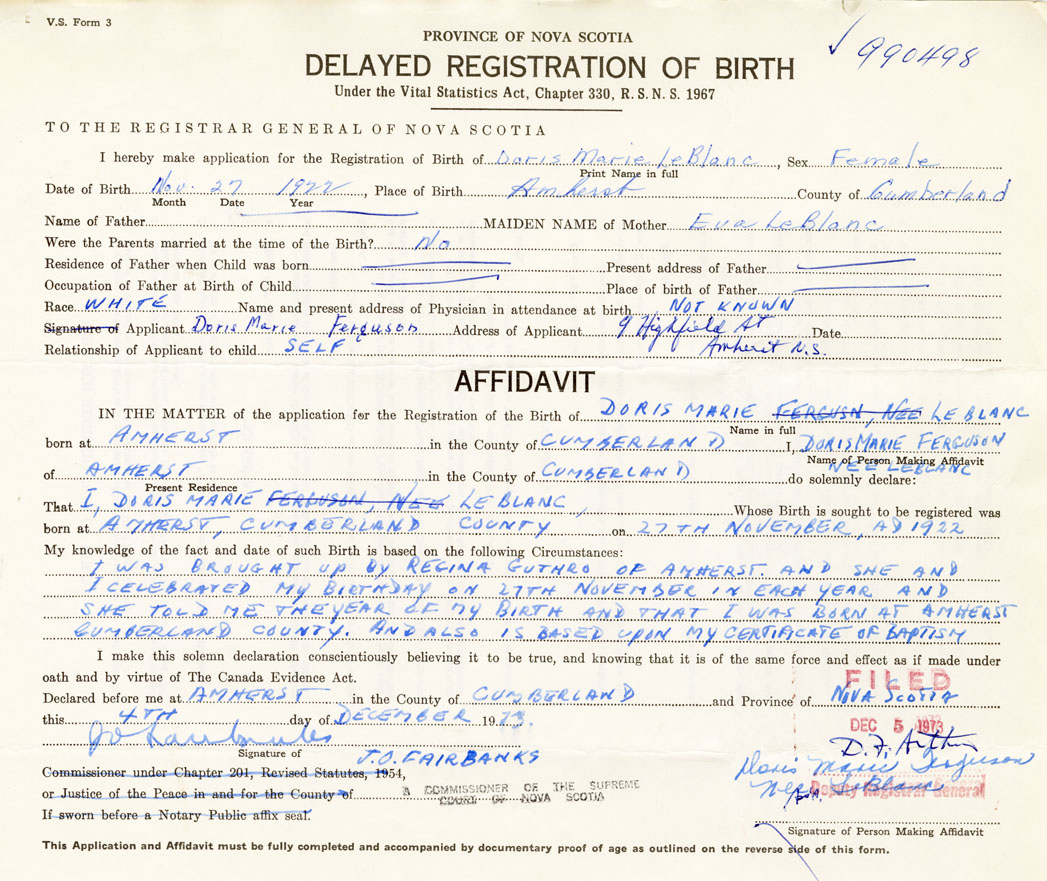 V.S. Form 3
990498
PROVINCE OF NOVA SCOTIA
DELAYED REGISTRATION OF BIRTH
Under the Vital Statistics Act, Chapter 330, R.S.N.S. 1967
TO THE REGISTRAR GENERAL OF NOVA SCOTIA
I hereby make application for the Registration of Birth of Doris Marie LeBlanc, Sex Female
Print Name in full
Date of Birth Nov. 27 1922, Place of Birth Amherst County of Cumberland
Month Date Year
Name of Father MAIDEN NAME of Mother Eva LeBlanc
Were the Parents married at the time of the Birth? No
Residence of Father when Child was born Present address of Father
Occupation of Father at Birth of Child Place of birth of Father
Race WHITE Name and present address of Physician in attendance at birth NOT KNOWN
Signature of Applicant Doris Marie Ferguson Address of Applicant 9 Highfield St Date
Relationship of Applicant to child SELF Amherst N.S.
AFFIDAVIT
IN THE MATTER of the application for the Registration of the Birth of DORIS MARIE FERGUSN, NEE LE BLANC
Name in full
born at AMHERST in the County of CUMBERLAND I, DORIS MARIE FERGUSON
Name of Person Making Affidavit
NEE LEBLANC
of AMHERST in the County of CUMBERLAND do solemnly declare:
Present Residence
That I, DORIS MARIE FERGUSON, NEE LE BLANC, Whose Birth is sought to be registered was
born at AMHERST, CUMBERLAND COUNTY on 27TH NOVEMBER, AD 1922
My knowledge of the fact and date of such Birth is based on the following Circumstances:
I WAS BROUGHT UP BY REGINA GUTHRO OF AMHERST. AND SHE AND
I CELEBRATED MY BIRTHDAY ON 27TH NOVEMBER IN EACH YEAR AND
SHE TOLD ME THE YEAR OF MY BIRTH AND THAT I WAS BORN AT AMHERST
CUMBERLAND COUNTY. AND ALSO IS BASED UPON MY CERTIFICATE OF BAPTISM
I make this solemn declaration conscientiously believing it to be true, and knowing that it is of the same force and effect as if made under
oath and by virtue of The Canada Evidence Act.
FILED
Declared before me at AMHERST in the County of CUMBERLAND and Province of NOVA SCOTIA
this 4TH day of DECEMBER 1973.
DEC 5 1973
Signature of J.O. FAIRBANKS
Commissioner under Chapter 201, Revised Statutes, 1954,
Doris Marie Ferguson
or Justice of the Peace in and for the County of
A COMMISSIONER OF THE SUPREME
COURT OF NOVA SCOTIA
Nee LeBlanc
Deputy Registrar General
If sworn before a Notary Public affix seal.
Signature of Person Making Affidavit
This Application and Affidavit must be fully completed and accompanied by documentary proof of age as outlined on the reverse side of this form.